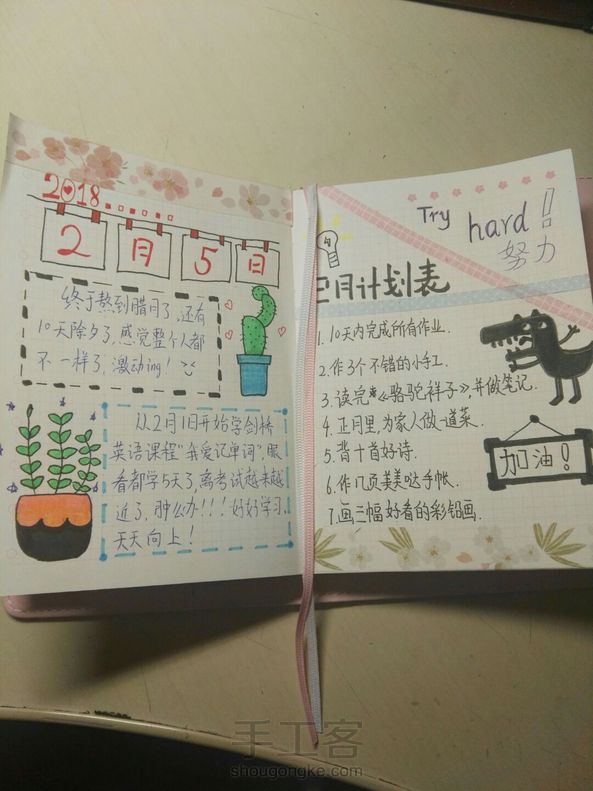 2018
2月5日
终于熬到腊月了,还有
10天除夕了,感觉整个人都
不一样了,激动ing!
从2月1日开始学剑桥
英语课程"我爱记单词",眼
看都学5天了,离考试越来越
近了,肿么办!!!好好学习,
天天向上!
Try hard!
努力
2月计划表
1.10天内完成所有作业.
2.作3个不错的小手工.
3.读完*《骆驼祥子》,并做笔记.
4.正月里,为家人做一道菜.
5.背十首好诗.
6.作几页美美哒手帐.
7.画三幅好看的彩铅画.
加油!
手工客
shougongke.com